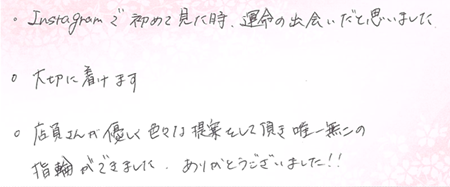 。Instagramで初めて見た時、運命の出会いだと思いました
。大切に着けます
。店員さんが優しく色々な提案をして頂き唯一無二の
指輪ができました。ありがとうございました!!